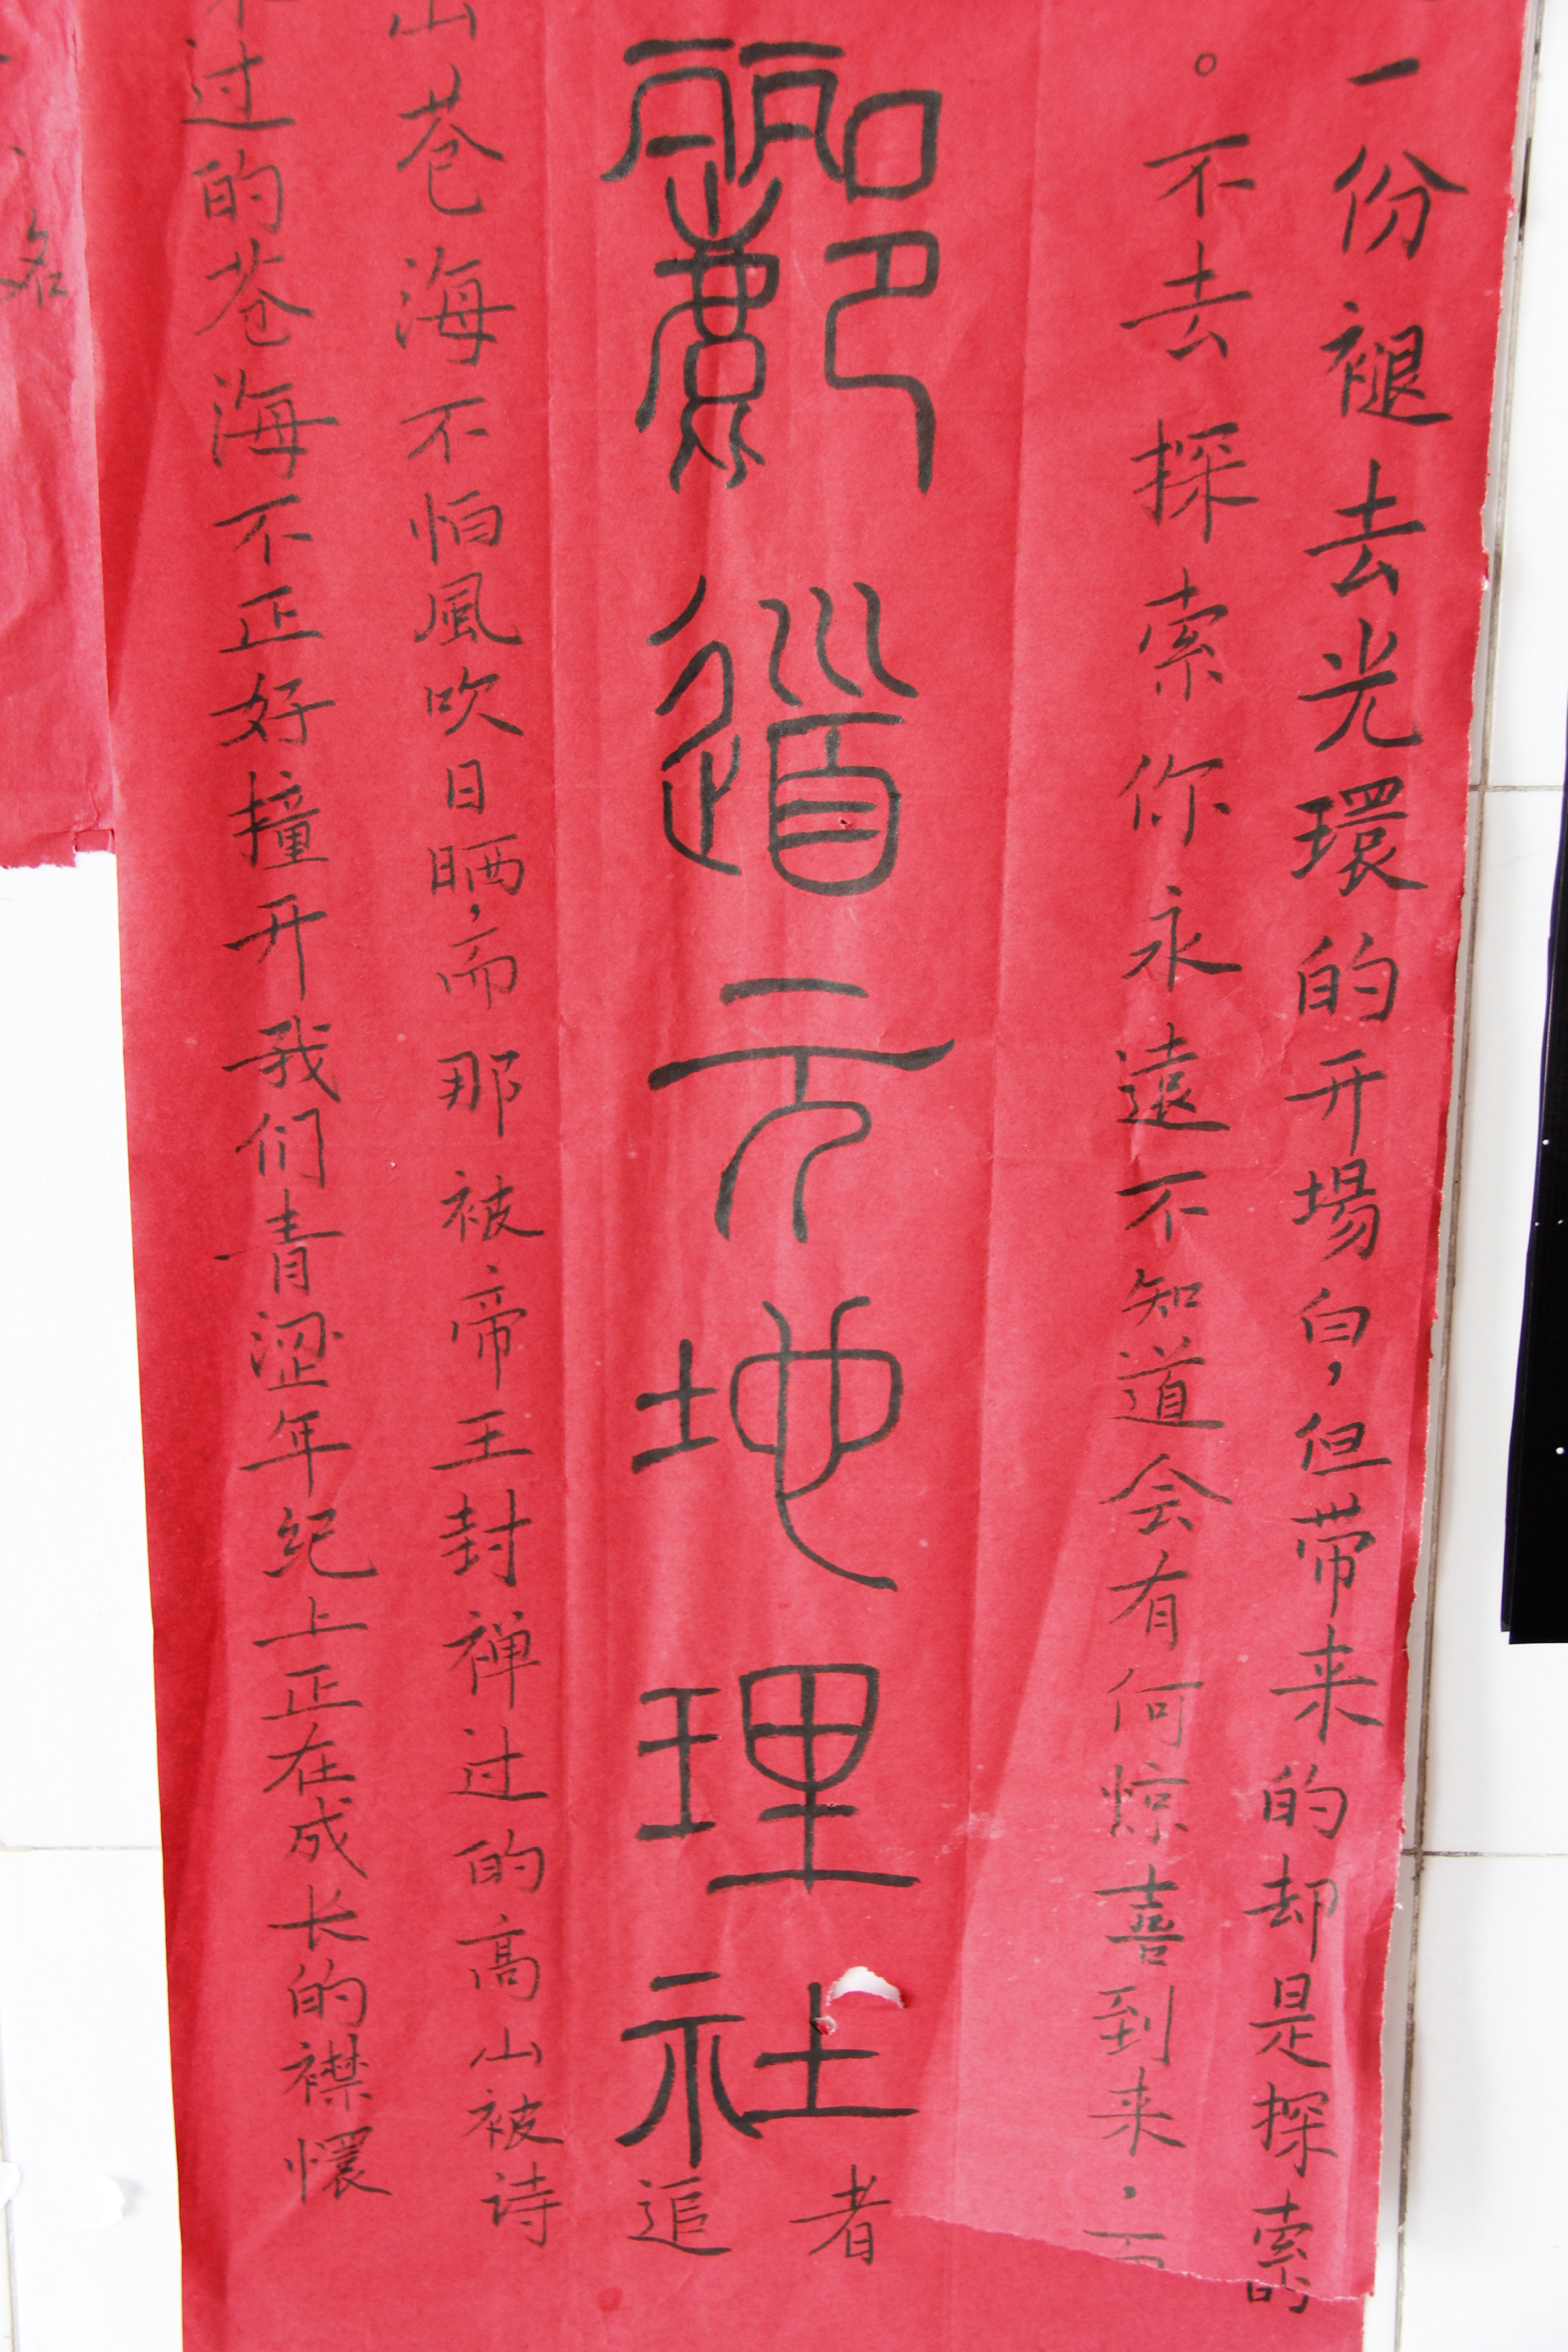 一份褪去光環的开場白，但带来的却是探索的
。不去探索你永遠不知道会有何惊喜到来，
酈道元地理社
者
追
山苍海不怕風吹日晒，而那被帝王封禅过的高山被诗
过的苍海不正好撞开我们青涩年纪上正在成长的襟懷
名